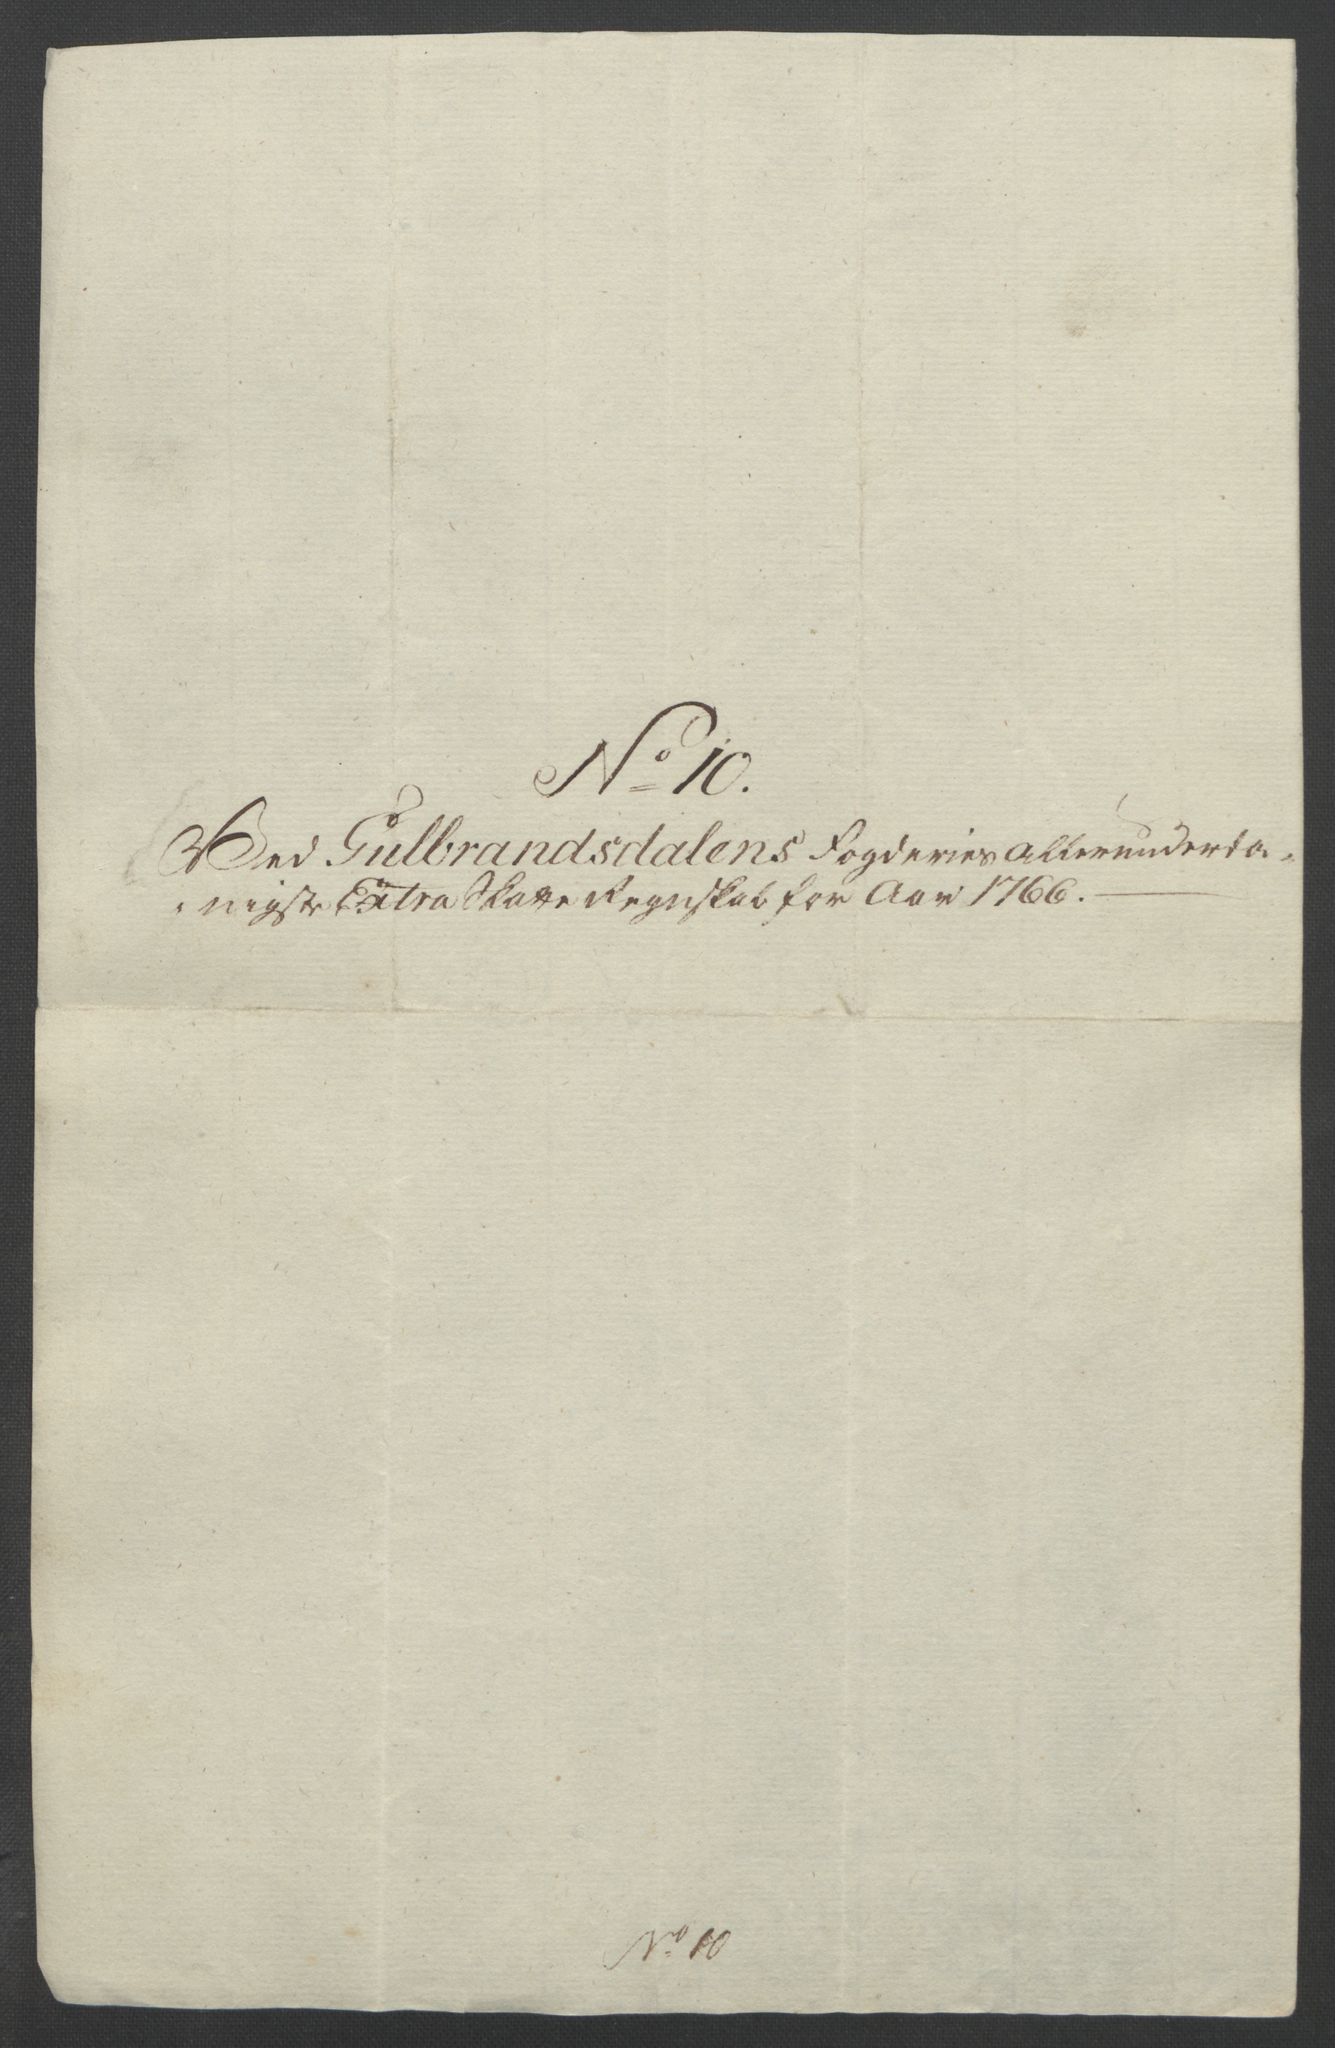 No 10.
Ved Gulbrandsdalens Fogderies allerunderda-
nigste Extra Skatte Regnskab for Aar 1766.
No 10